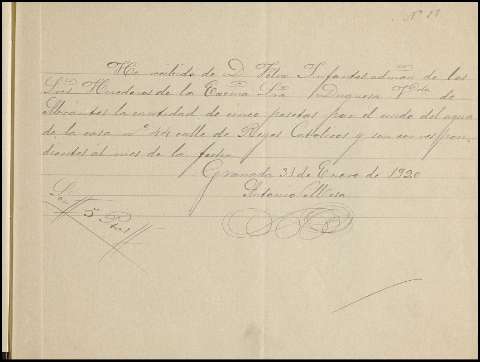 Nº 28
He recibido de D. Felix Infantes admón de los
Sres Herederos de la Excma Sra Duquesa Vda de
Abrantes la cantidad de cinco pesetas por el cuido del agua
de la casa nº 44 calle de Reyes Católicos y son corres pon-
dientes al mes de la fecha
Granada 31 de Enero de 1920
Antonio Mesa
Son 5 Ptas